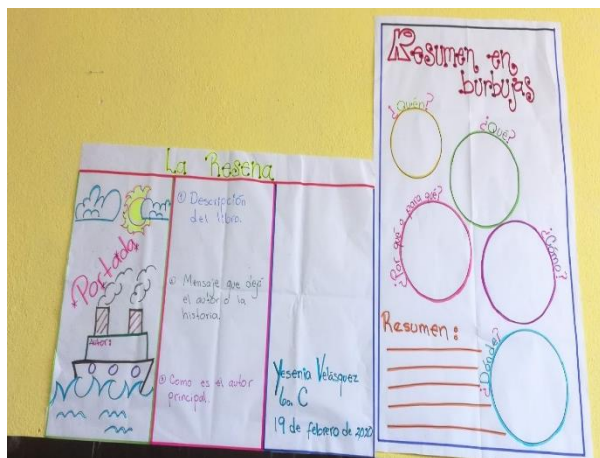 La Resena
Portada
Autora
Descripción
del libro.
Mensaje que dejó
el autor o la
historia.
Como es el autor
principal.
Yesenia Velásquez
6o. C
19 de febrero de 2020
Resumen en
burbujas
¿Quién?
¿Qué?
¿Por qué o para qué?
¿Cómo?
Resumen:
¿Dónde?